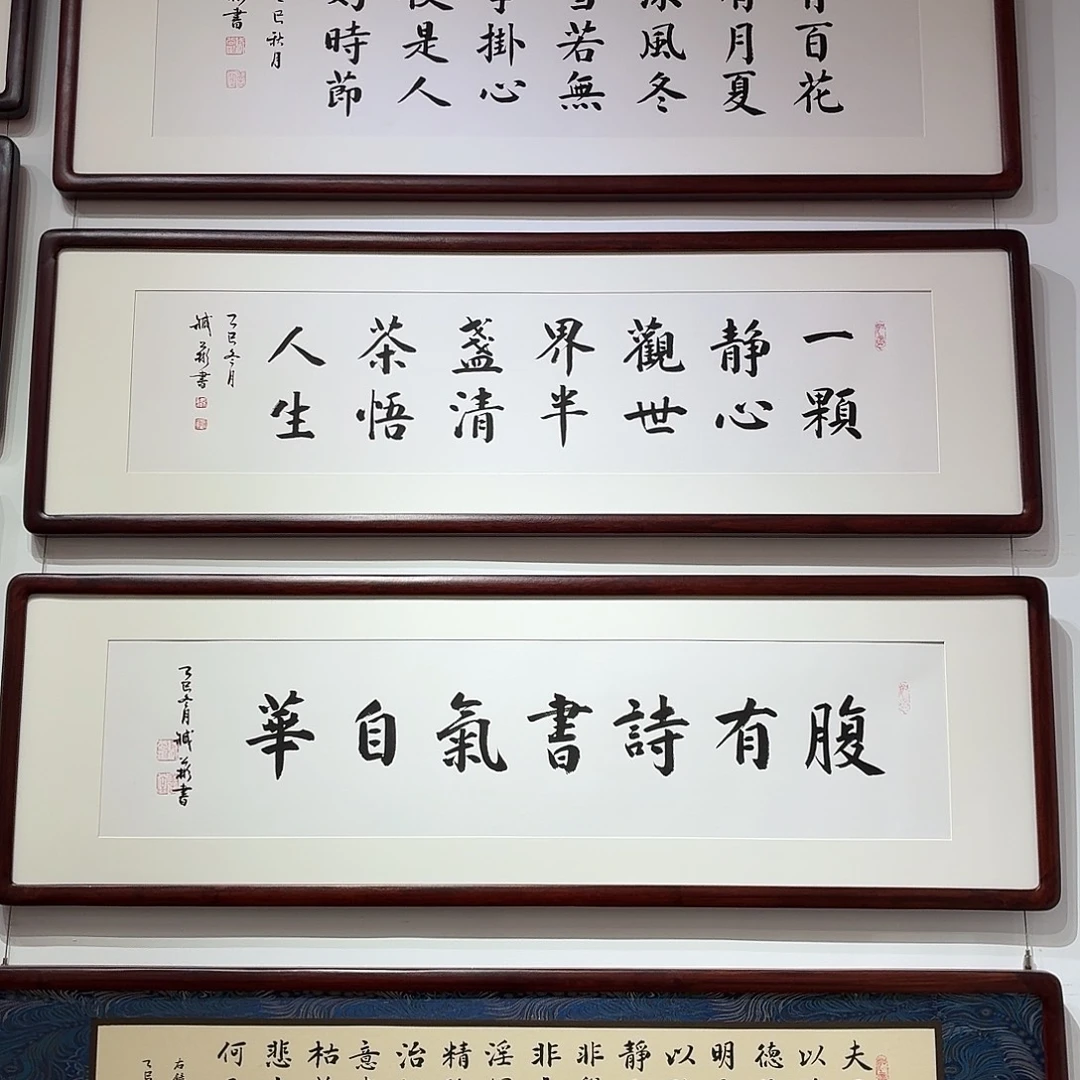 有百花
有月夏
涼風冬
雪若無
事掛心
便是人
好時節
乙巳秋月
書
一顆
静心
觀世
界半
盞清
茶悟
人生
乙巳冬月
臧
書
腹有詩書氣自華
乙巳冬月臧書
夫
以
德
明
以
静
非
非
淫
精
治
意
枯
悲
何
右
乙